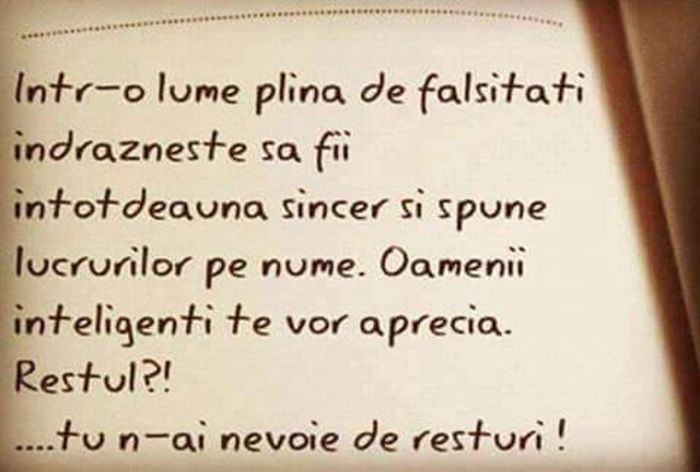 Intr-o lume plina de falsitati
indrazneste sa fii
intotdeauna sincer si spune
lucrurilor pe nume. Oamenii
inteligenti te vor aprecia.
Restul?!
....tu n-ai nevoie de resturi !